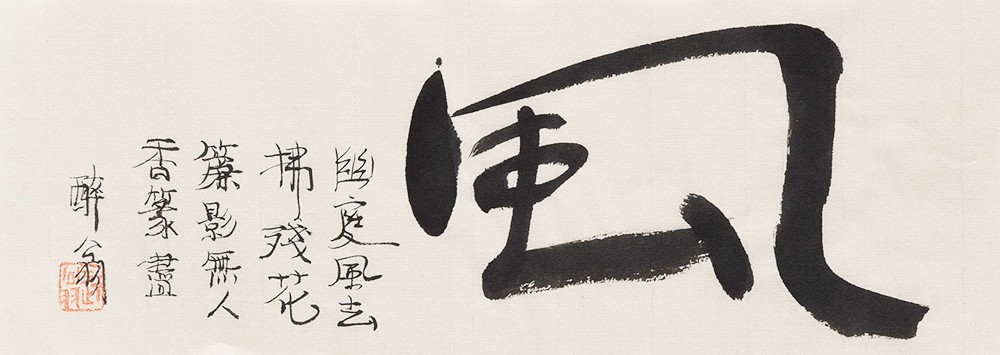 風
幽庭風去
拂殘花
簾影無人
香篆盡
醉翁